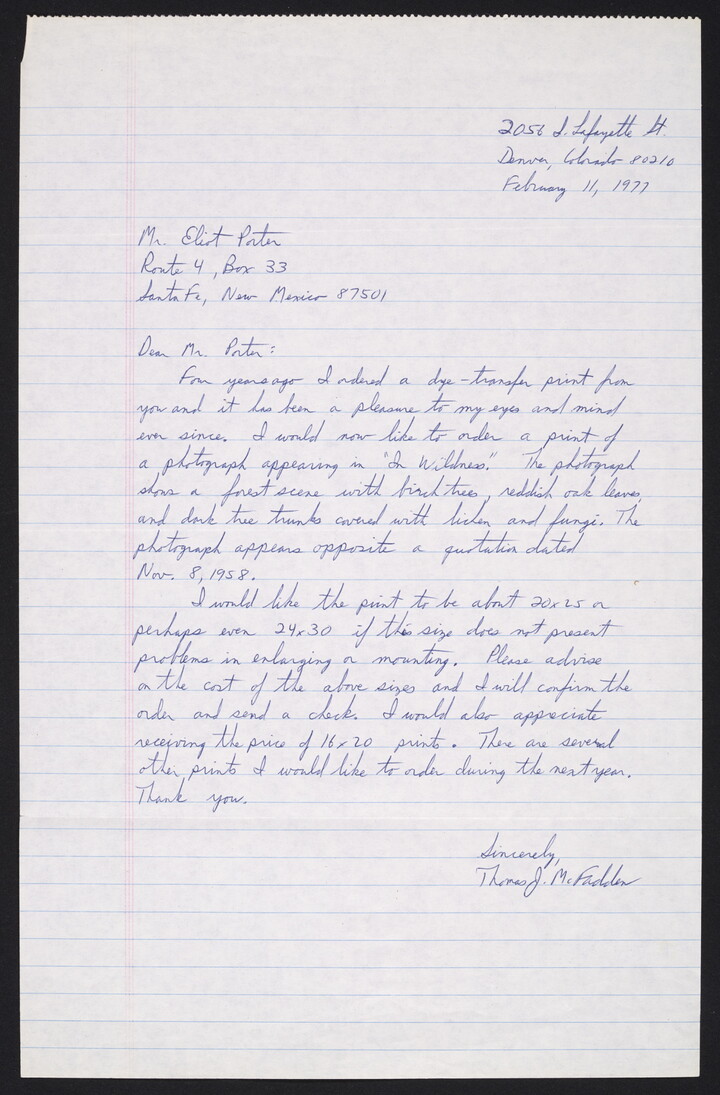 2056 S. Lafayette St.
Denver, Colorado 80210
February 11, 1977
Mr. Eliot Porter
Route 4, Box 33
Santa Fe, New Mexico 87501
Dear Mr. Porter:
Four years ago I ordered a dye-transfer print from
you and it has been a pleasure to my eyes and mind
ever since. I would now like to order a print of
a photograph appearing in "In Wildness." The photograph
shows a forest scene with birch trees, reddish oak leaves,
and dark tree trunks covered with lichen and fungi. The
photograph appears opposite a quotation dated
Nov. 8, 1958.
I would like the print to be about 20x25 or
perhaps even 24x30 if this size does not present
problems in enlarging or mounting. Please advise
on the cost of the above sizes and I will confirm the
order and send a check. I would also appreciate
receiving the price of 16x20 prints. There are several
other prints I would like to order during the next year.
Thank you.
Sincerely,
Thomas J. McFadden